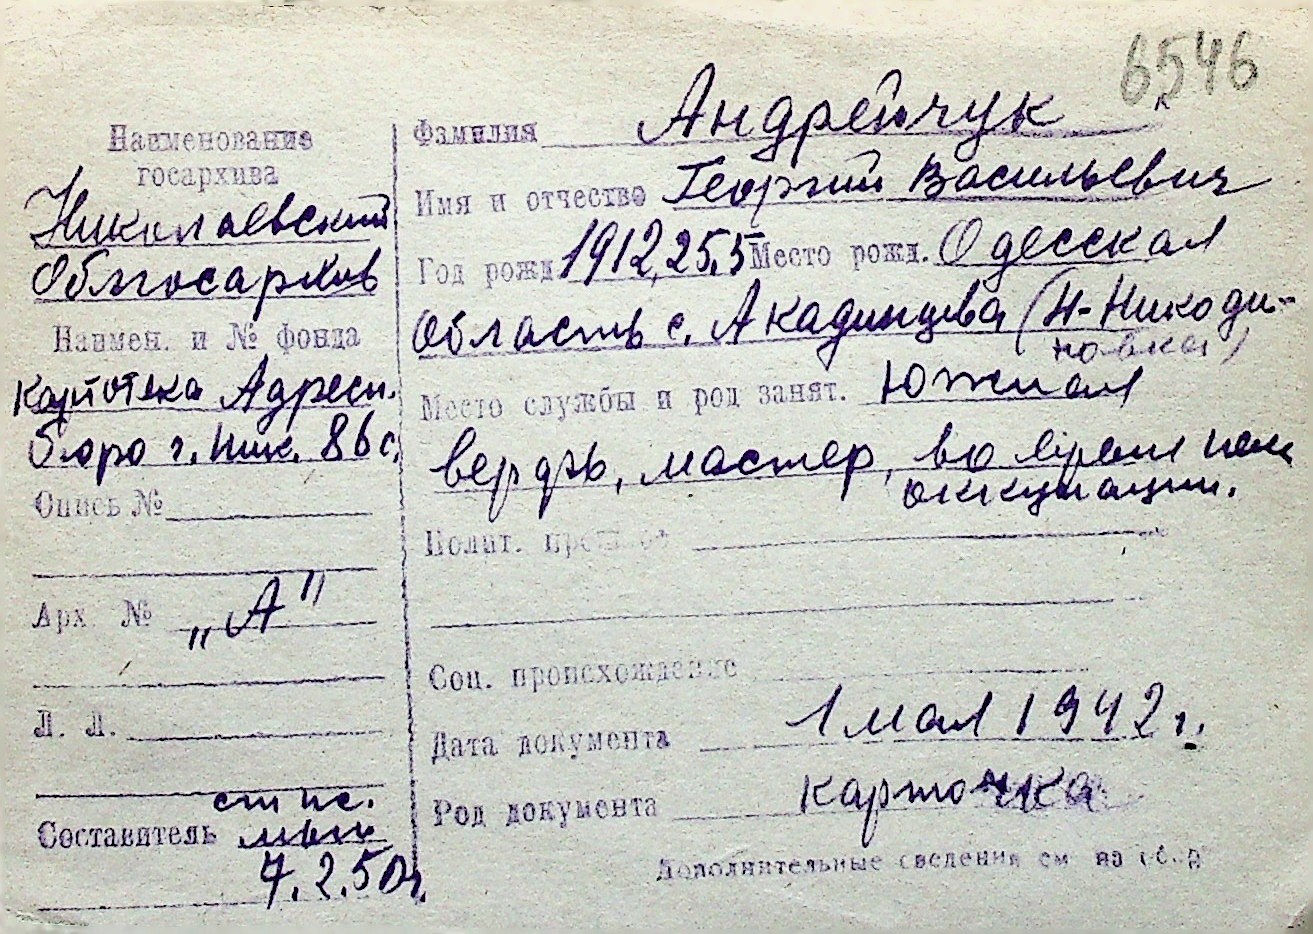 6546
Наименование
госархива
Николаевский
Облгосархив
Наимен. и № фонда
картотека Адресн.
бюро г. Ник. 86 с.
Опись №
Арх № „А"
Л. Л.
Составитель ст нс.
7.2.50г.
Фамилия Андрейчук
Имя и отчество Георгий Васильевич
Год рожд 1912, 25.5 Место рожд. Одесская
область с. Акадинцева (Н-Никоди-
новка)
Место службы и род занят. Южная
верфь, мастер, во время нем
оккупации.
Полит. прошлое
Соц. происхождение
Дата документа 1 мая 1942 г.
Род документа карточка
Дополнительные сведения см на обор